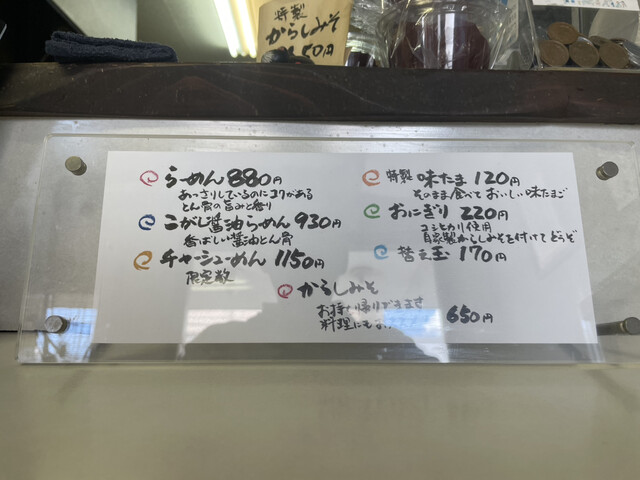 特製
からしみそ
らーめん 880円
あっさりしているのにコクがある
とん骨の旨みと香り
こがし醤油らーめん 930円
香ばしい醤油とん骨
チャーシューめん 1150円
限定数
特製 味たま 120円
そのまま食べて おいしい味たまご
おにぎり 220円
コシヒカリ使用
自家製からしみそを付けてどうぞ
替え玉 170円
からしみそ
お持ち帰りできます
料理にも
650円